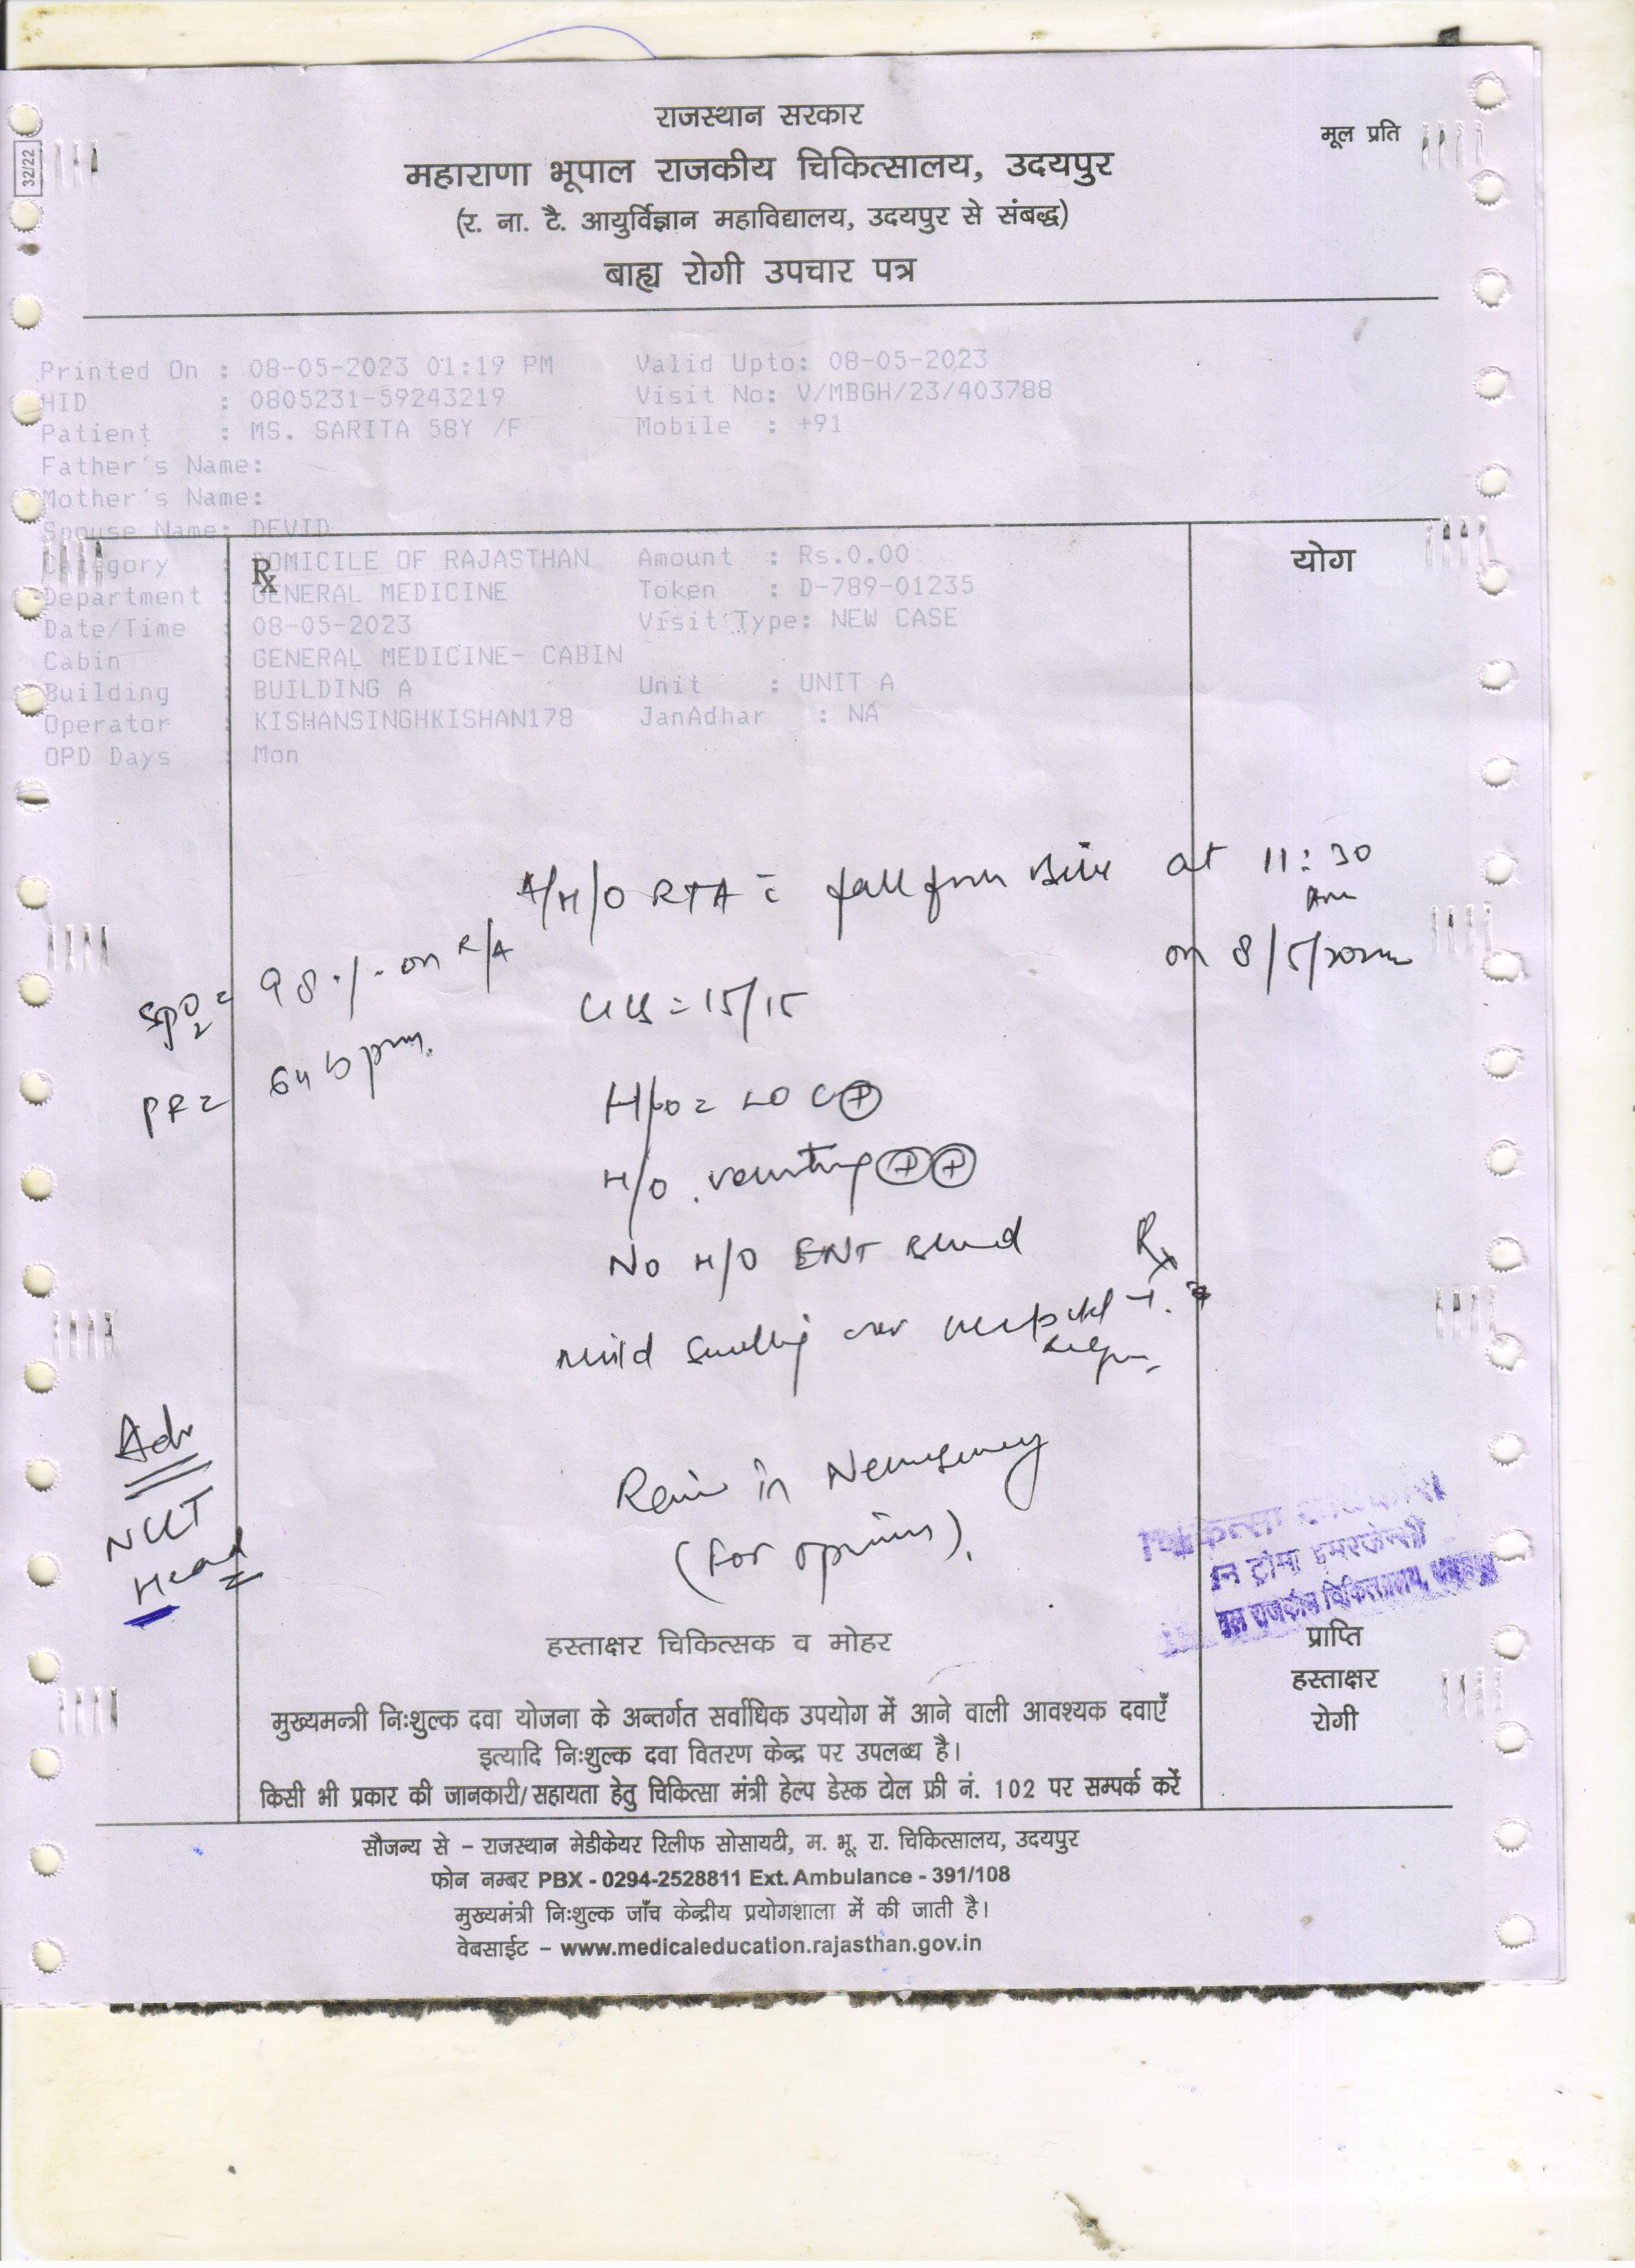 राजस्थान सरकार
मूल प्रति
32/22
महाराणा भूपाल राजकीय चिकित्सालय, उदयपुर
(र. ना. टै. आयुर्विज्ञान महाविद्यालय, उदयपुर से संबद्ध)
बाह्य रोगी उपचार पत्र
Printed On : 08-05-2023 01:19 PM Valid Upto: 08-05-2023
HID : 0805231-59243219 Visit No: V/MBGH/23/403788
Patient : MS. SARITA 58Y /F Mobile : +91
Father's Name:
Mother's Name:
Spouse Name: DEVID
Category : DOMICILE OF RAJASTHAN Amount : Rs.0.00
योग
Rx
Department : GENERAL MEDICINE Token : D-789-01235
Date/Time : 08-05-2023 Visit Type: NEW CASE
Cabin : GENERAL MEDICINE- CABIN
Building : BUILDING A Unit : UNIT A
Operator : KISHANSINGHKISHAN178 JanAdhar : NA
OPD Days : Mon
A/H/O RTA c̄ fall from Bike at 11:30
Am
on 8/5/
SpO2 = 98 % on R/A
GCS = 15/15
PR = 64 bpm.
H/O = LOC ⊕
H/O vomiting ⊕⊕
No H/O ENT Bleed
Rx
mild swelling over occipital
Adv
NCCT
Head
in Neurosurgery
(For opinion).
चिकित्सा
ट्रोमा इमरजेन्सी
राजकीय चिकित्सालय,
हस्ताक्षर चिकित्सक व मोहर
प्राप्ति
हस्ताक्षर
रोगी
मुख्यमन्त्री निःशुल्क दवा योजना के अन्तर्गत सर्वाधिक उपयोग में आने वाली आवश्यक दवाएँ
इत्यादि निःशुल्क दवा वितरण केन्द्र पर उपलब्ध है।
किसी भी प्रकार की जानकारी/सहायता हेतु चिकित्सा मंत्री हेल्प डेस्क टोल फ्री नं. 102 पर सम्पर्क करें
सौजन्य से – राजस्थान मेडीकेयर रिलीफ सोसायटी, म. भू. रा. चिकित्सालय, उदयपुर
फोन नम्बर PBX - 0294-2528811 Ext. Ambulance - 391/108
मुख्यमंत्री निःशुल्क जाँच केन्द्रीय प्रयोगशाला में की जाती है।
वेबसाईट – www.medicaleducation.rajasthan.gov.in